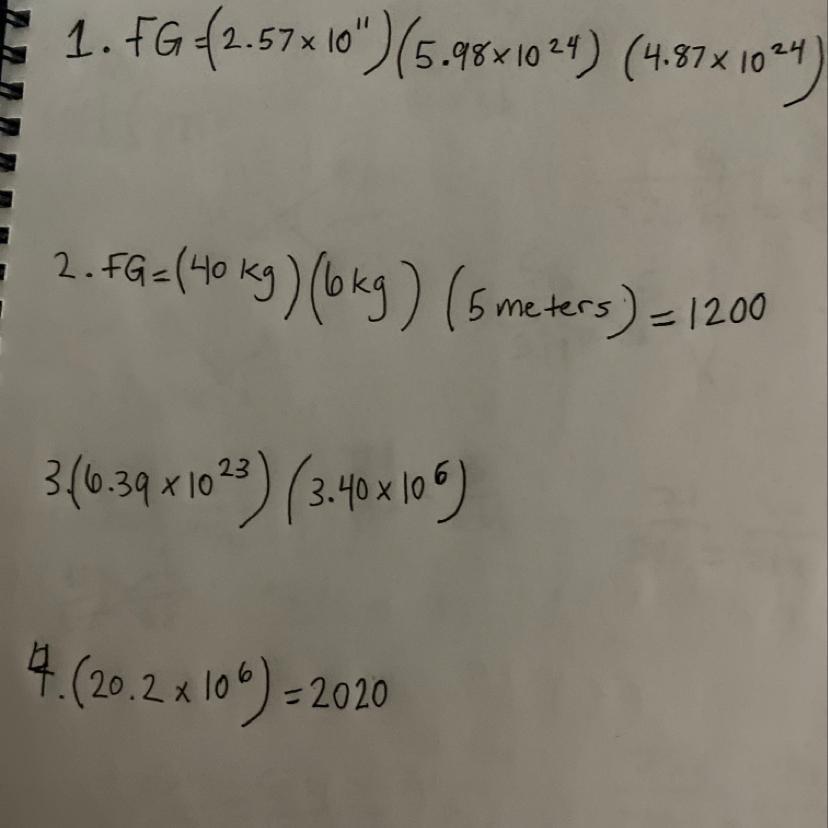 1. FG=(2.57x10¹¹)(5.98x10²⁴) (4.87x10²⁴)
2. FG=(40 kg)(6kg) (5 meters)=1200
3.(6.39 x10²³)(3.40x10⁶)
4.(20.2 x 10⁶)=2020